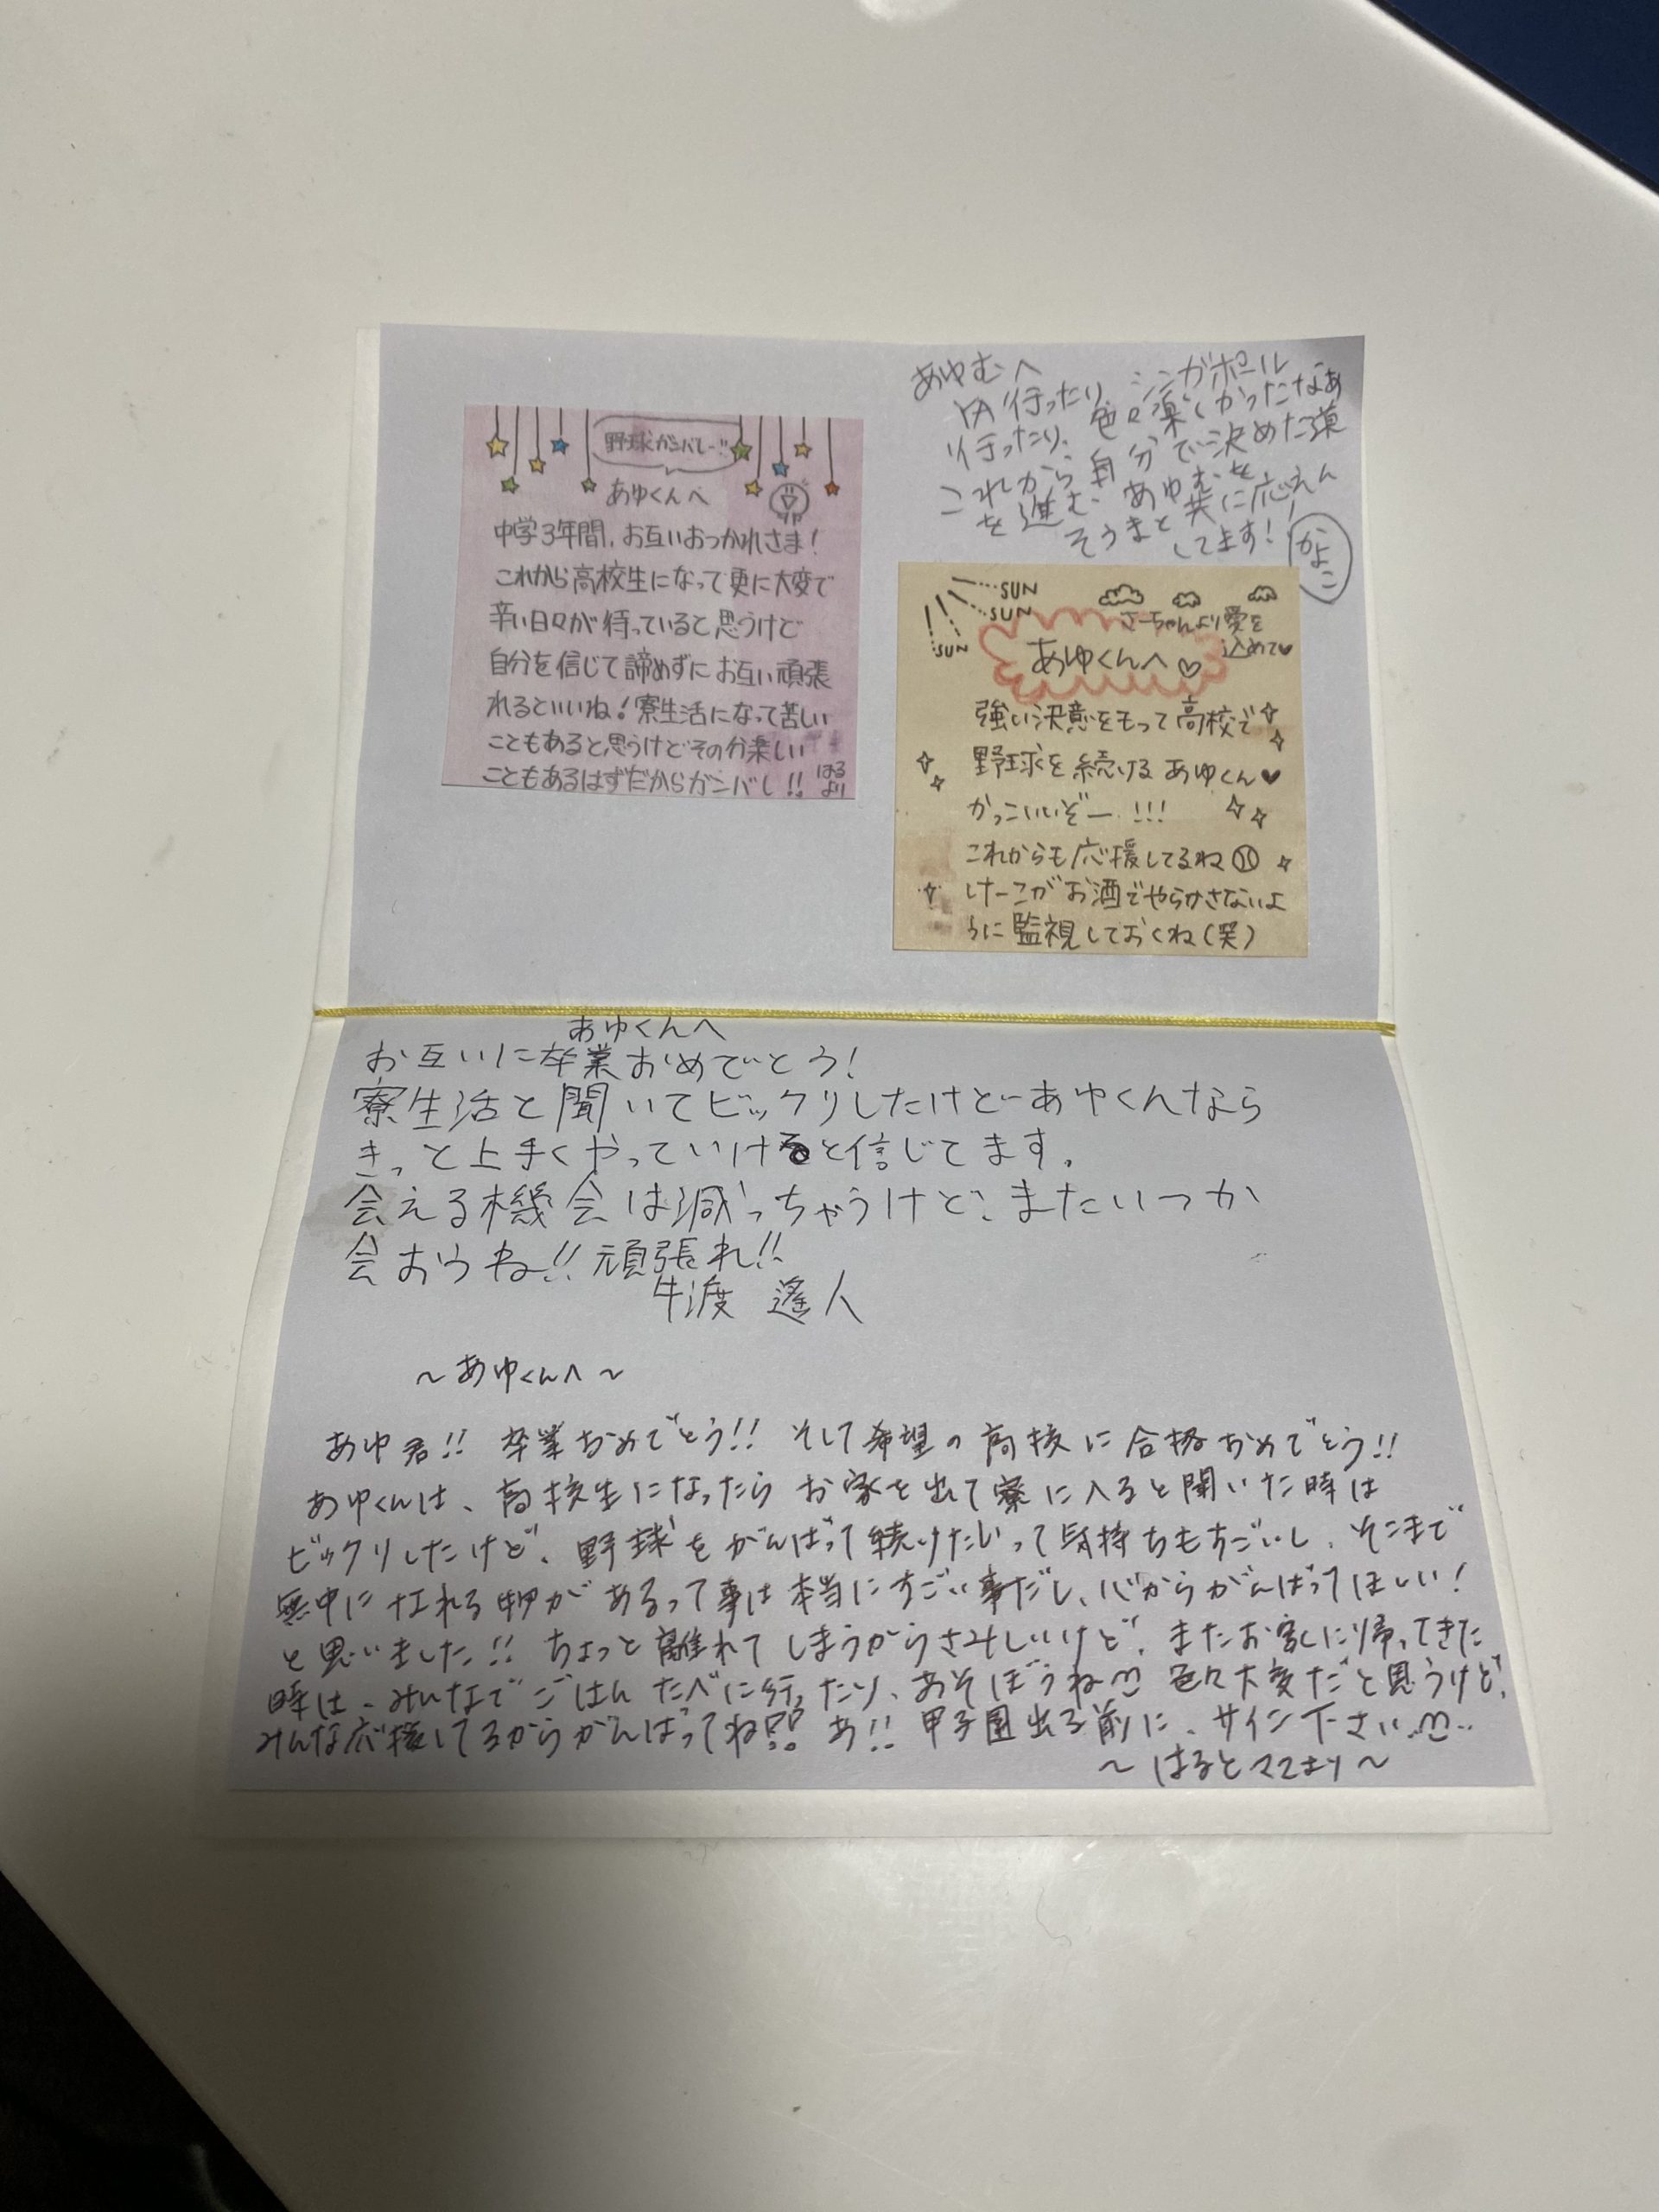 野球ガンバレー!!
あゆくんへ
中学3年間、お互いおつかれさま!
これから高校生になって更に大変で
辛い日々が待っていると思うけど
自分を信じて諦めずにお互い頑張
れるといいね!寮生活になって苦しい
こともあると思うけどその分楽しい
こともあるはずだからガンバレ!!
はる
より
あゆむへ
行ったり、シンガポール
行ったり、色々楽しかったなぁ
これから、自分で決めた道
を進む、あゆむを
そうまと共に応えん
してます!
かよこ
SUN
SUN
SUN
さーちゃんより愛を
込めて♥
あゆくんへ♡
強い決意をもって高校で
野球を続けるあゆくん♥
かっこいいぞー!!!
これからも応援してるね
けーこがお酒でやらかさないよ
うに監視しておくね(笑)
あゆくんへ
お互いに卒業おめでとう!
寮生活と聞いてビックリしたけどあゆくんなら
きっと上手くやっていけると信じてます。
会える機会は減っちゃうけど、またいつか
会おうね!!頑張れ!!
牛渡 遥人
~あゆくんへ~
あゆ君!! 卒業おめでとう!! そして希望の高校に合格おめでとう!!
あゆくんは、高校生になったらお家を出て寮に入ると聞いた時は
ビックリしたけど、野球をがんばって続けたいって気持ちもすごいし、そこまで
無中になれる物があるって事は本当にすごい事だし、心からがんばってほしい!
と思いました!! ちょっと離れてしまうからさみしいけど、またお家に帰ってきた
時は、みんなでごはんたべに行ったり、あそぼうね 色々大変だと思うけど、
みんな応援してるからがんばってね!! あ!! 甲子園出る前に、サイン下さい
~はるとママより~